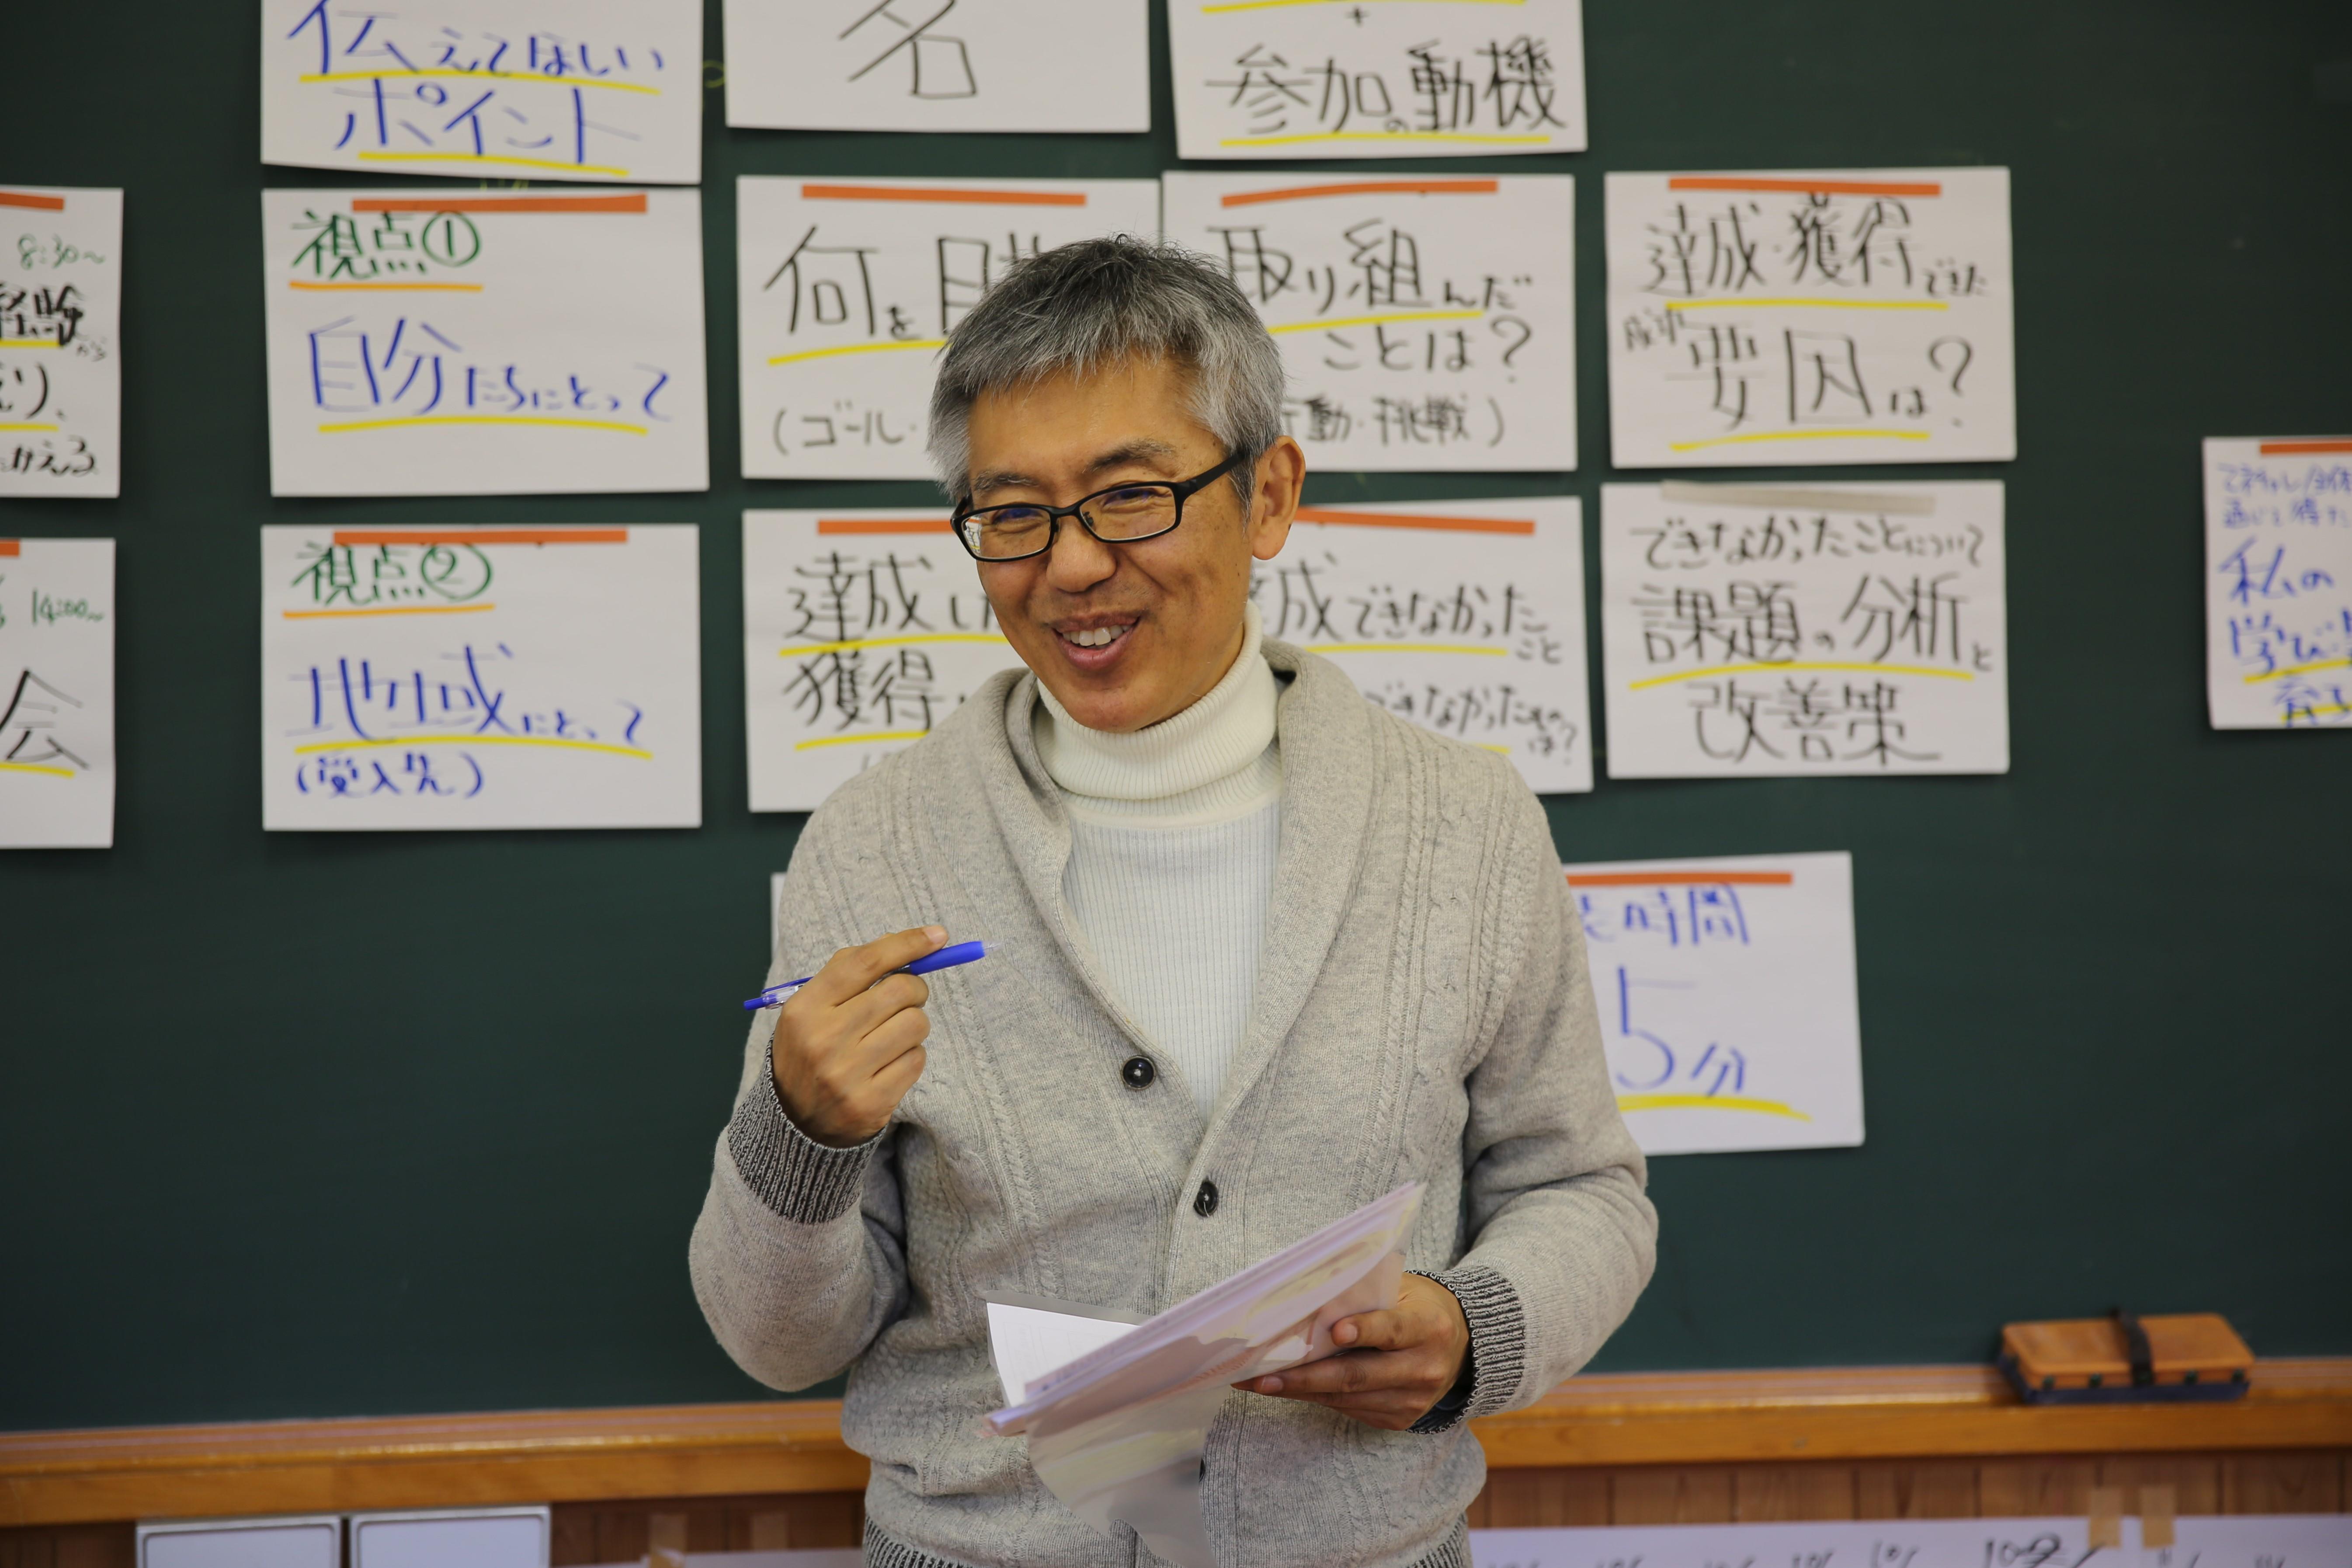 伝えてほしい
ポイント
名
+
参加の動機
8:30~
経験から
かえる
視点①
自分たちにとって
何を目
(ゴール・
取り組んだ
ことは?
動・挑戦)
達成・獲得できた
要因は?
14:00~
会
視点②
地域にとって
(受入先)
達成し
獲得
成できなかったこと
できなかったものは?
できなかったことについて
課題の分析と
改善策
私の
学び
時間
5分